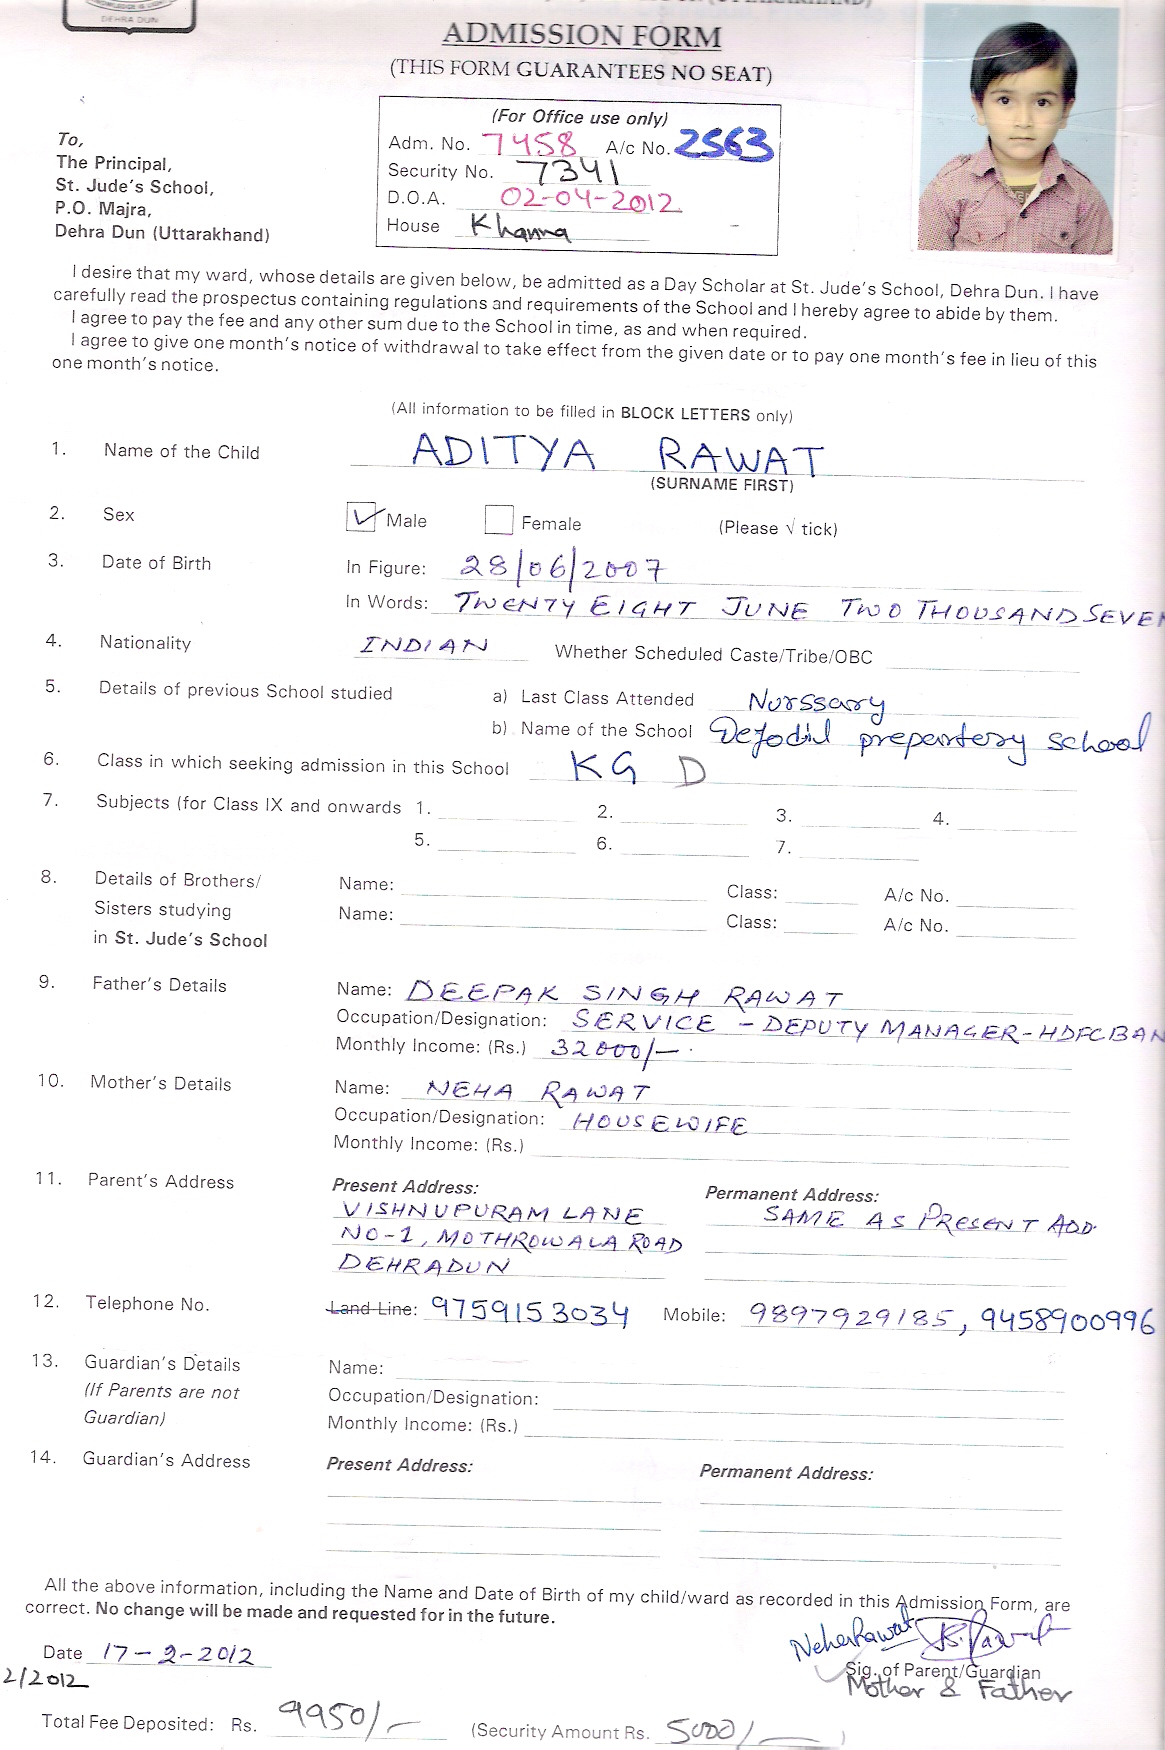 DEHRA DUN
ADMISSION FORM
(THIS FORM GUARANTEES NO SEAT)
(For Office use only)
Adm. No. 7458 A/c No. 2563
Security No. 7341
D.O.A. 02-04-2012
House Khanna
To,
The Principal,
St. Jude's School,
P.O. Majra,
Dehra Dun (Uttarakhand)
I desire that my ward, whose details are given below, be admitted as a Day Scholar at St. Jude's School, Dehra Dun. I have
carefully read the prospectus containing regulations and requirements of the School and I hereby agree to abide by them.
I agree to pay the fee and any other sum due to the School in time, as and when required.
I agree to give one month's notice of withdrawal to take effect from the given date or to pay one month's fee in lieu of this
one month's notice.
(All information to be filled in BLOCK LETTERS only)
1. Name of the Child ADITYA RAWAT
(SURNAME FIRST)
2. Sex ✓ Male Female (Please √ tick)
3. Date of Birth In Figure: 28/06/2007
In Words: TWENTY EIGHT JUNE TWO THOUSAND SEVEN
4. Nationality INDIAN Whether Scheduled Caste/Tribe/OBC
5. Details of previous School studied a) Last Class Attended Nurssary
b) Name of the School Defodil prepentery school
6. Class in which seeking admission in this School KG D
7. Subjects (for Class IX and onwards 1. 2. 3. 4.
5. 6. 7.
8. Details of Brothers/ Name: Class: A/c No.
Sisters studying Name: Class: A/c No.
in St. Jude's School
9. Father's Details Name: DEEPAK SINGH RAWAT
Occupation/Designation: SERVICE - DEPUTY MANAGER-HDFCBAN
Monthly Income: (Rs.) 32000/-
10. Mother's Details Name: NEHA RAWAT
Occupation/Designation: HOUSEWIFE
Monthly Income: (Rs.)
11. Parent's Address Present Address: Permanent Address:
VISHNUPURAM LANE SAME AS PRESENT ADD.
NO-1, MOTHROWALA ROAD
DEHRADUN
12. Telephone No. Land Line: 9759153034 Mobile: 9897929185, 9458900996
13. Guardian's Details Name:
(If Parents are not Occupation/Designation:
Guardian) Monthly Income: (Rs.)
14. Guardian's Address Present Address: Permanent Address:
All the above information, including the Name and Date of Birth of my child/ward as recorded in this Admission Form, are
correct. No change will be made and requested for in the future.
Neha Rawat
Date 17-2-2012
Sig. of Parent/Guardian
2/2012
Mother & Father
Total Fee Deposited: Rs. 9950/- (Security Amount Rs. 5000/- )